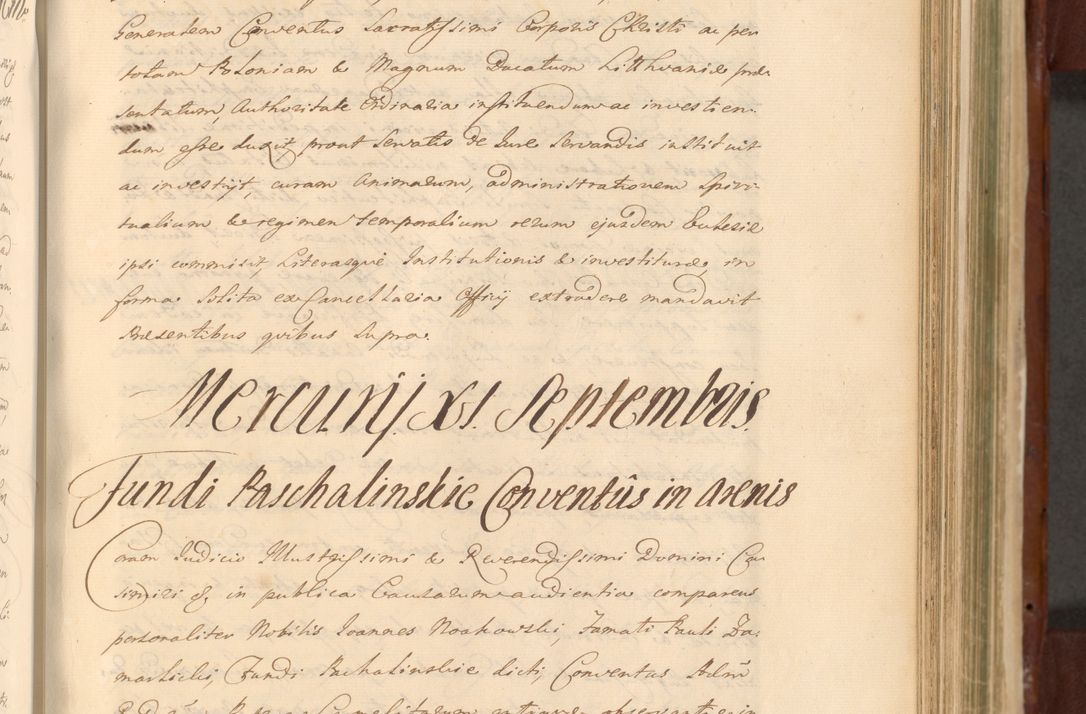 Generalem Conventus Sacratissimi Corporis Christi ac per
totam Poloniam & Magnum Ducatum Litthvaniæ præ-
sentatum, Authoritate Ordinaria instituendum ac investien-
dum esse duxit, prout servatis de Iure servandis instituit
ac investijt, curam Animarum, administrationem Spiri-
tualium & regimen temporalium rerum ejusdem Ecclesiæ
ipsi commisit, Literasque Institutionis & investituræ, in
forma solita ex Cancellaria Officij extradere mandavit
Præsentibus quibus supra.
Mercurij XI. Septembris.
Fundi Paschalinskie Conventûs in Arenis
Coram Iudicio Illustrissimi & Reverendissimi Domini Ca-
simiri in publica Causarum audientia comparens
personaliter Nobilis Ioannes Noskowski, Famati Pauli Za-
marlicki, Fundi Pachalinskie dicti, Conventus Adm̃